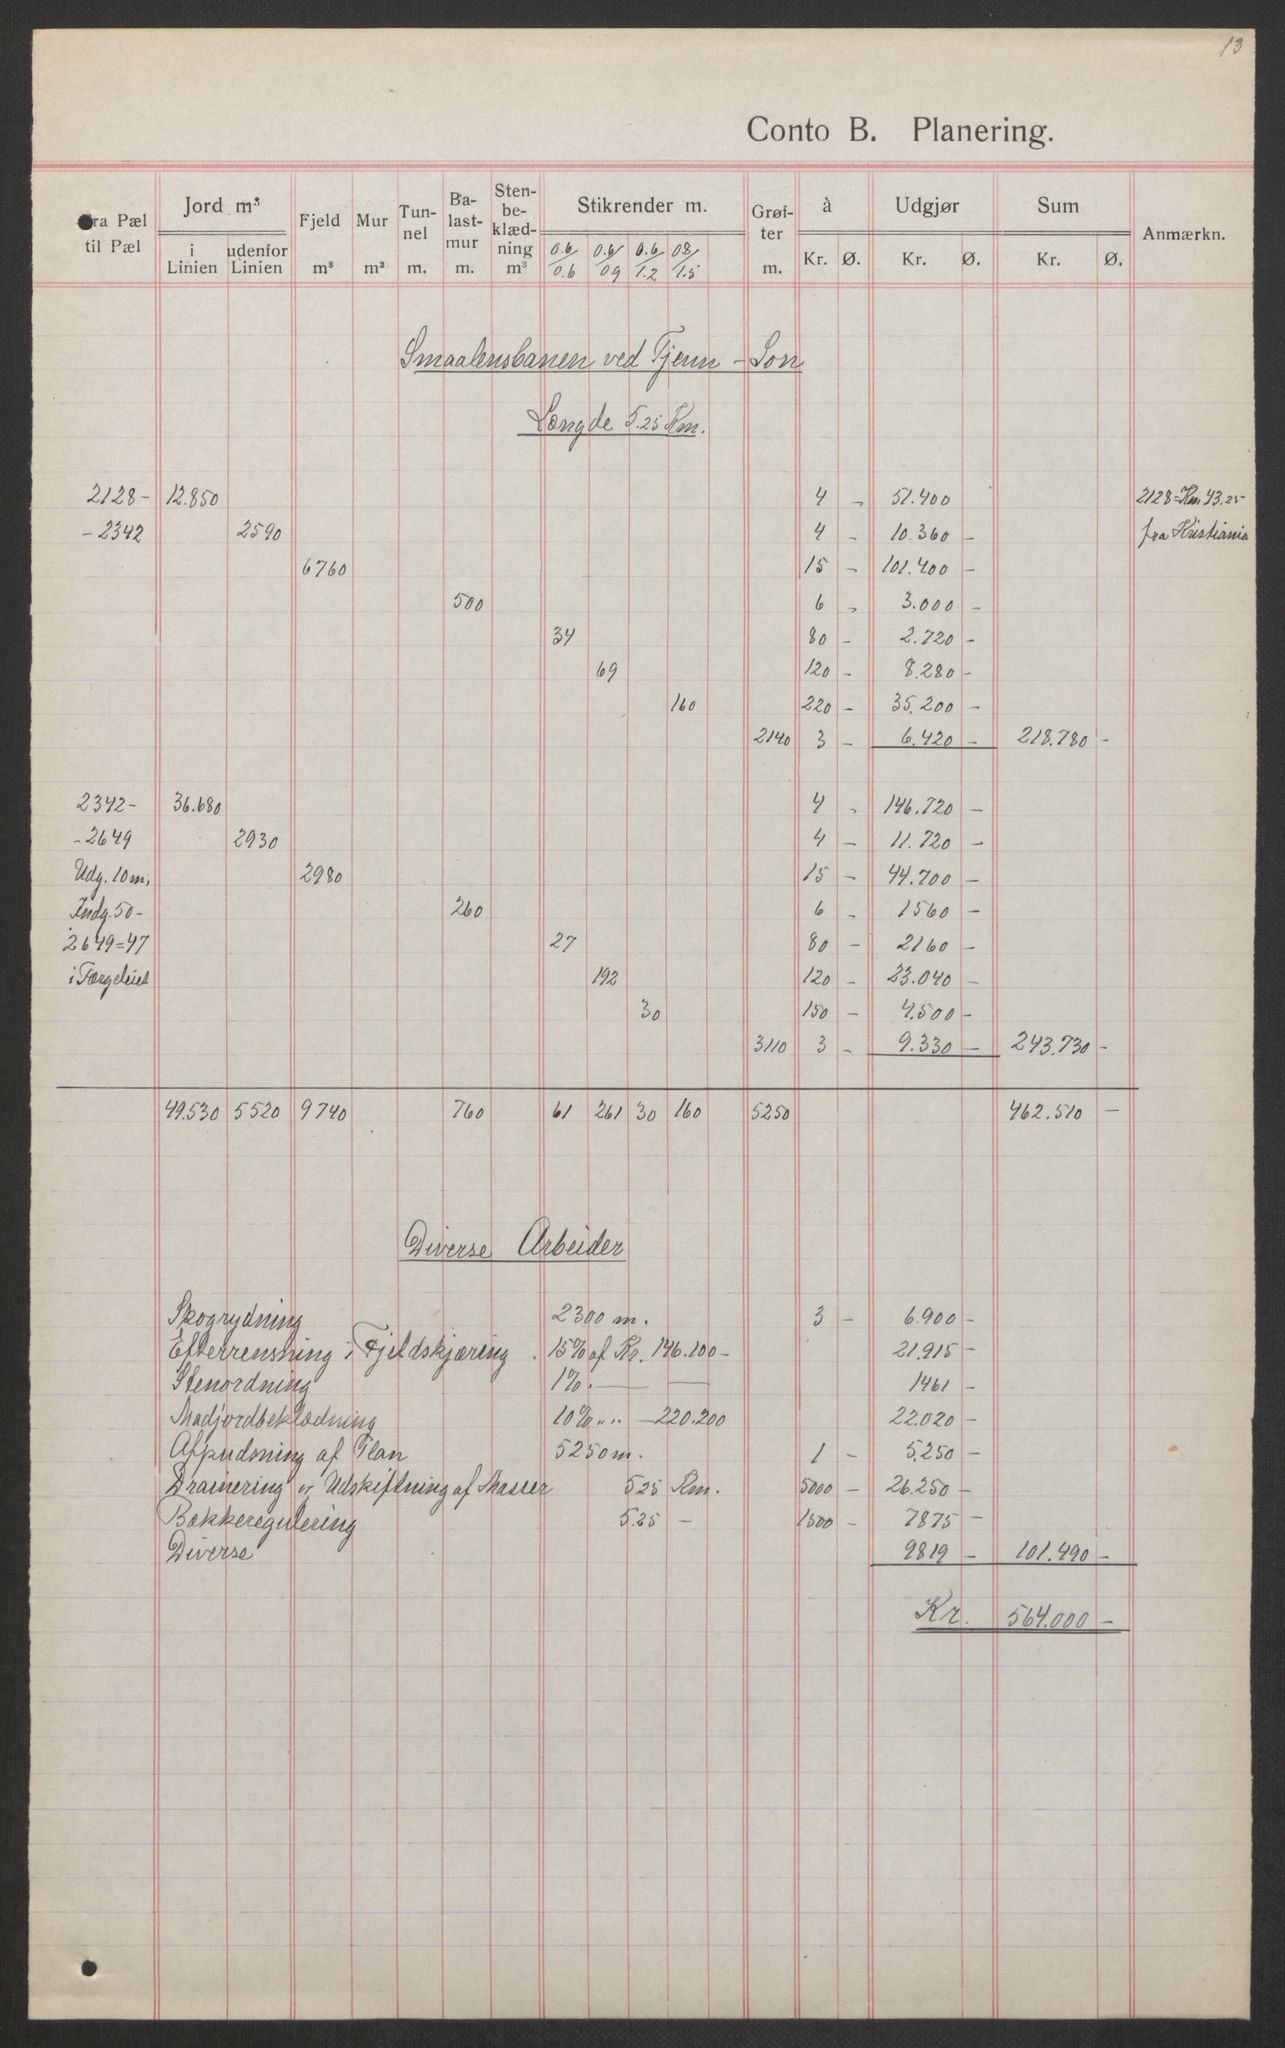 13
Conto B. Planering.
Fra Pæl til Pæl | Jord m³ i Linien | udenfor Linien | Fjeld m³ | Mur m³ | Tunnel m. | Ba-last-mur m. | Sten-be-klæd-ning m³ | Stikrender m. 0.6/0.6 | 0.6/09 | 0.6/1.2 | 08/1.5 | Grøf-ter m. | à Kr. Ø. | Udgjør Kr. Ø. | Sum Kr. Ø. | Anmærkn.
Smaalensbanen ved Tjenn - Son
Længde 5.25 Km.
2128 - 12.850 4 - 51.400 2128 = Km 43.25
- 2342 2590 4 - 10.360 - fra Kristiania
6760 15 - 101.400 -
500 6 - 3.000 -
34 80 - 2.720 -
69 120 - 8.280 -
160 220 - 35.200 -
2140 3 - 6.420 - 218.780 -
2342 - 36.680 4 - 146.720 -
- 2649 2930 4 - 11.720 -
Udg. 10 m, 2980 15 - 44.700 -
Indg. 50 - 260 6 - 1560 -
2649 = 47 27 80 - 2160 -
i Færgeleiet 192 120 - 23.040 -
30 150 - 4.500 -
3110 3 - 9.330 - 243.730 -
49.530 5520 9740 760 61 261 30 160 5250 462.510 -
Diverse Arbeider
Skogrydning 2300 m. 3 - 6.900 -
Efterrensning i Fjeldskjæring . 15% af Kr. 146.100 - 21.915 -
Stenordning 1% . — — 1461 -
Madjordbeklædning 10% " " — 220.200 22.020 -
Afpudsning af Plan 5250 m. 1 - 5.250 -
Drainering og Udskiftning af Masser 5.25 Km. 5000 - 26.250 -
Bækkeregulering 5.25 - 1500 - 7875 -
Diverse 9819 - 101.490 -
Kr. 564.000 -